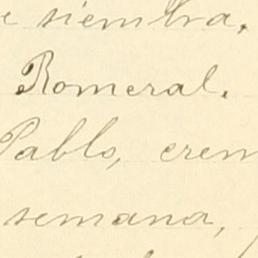 e siembra.
Romeral.
Pablo, crem
semana,